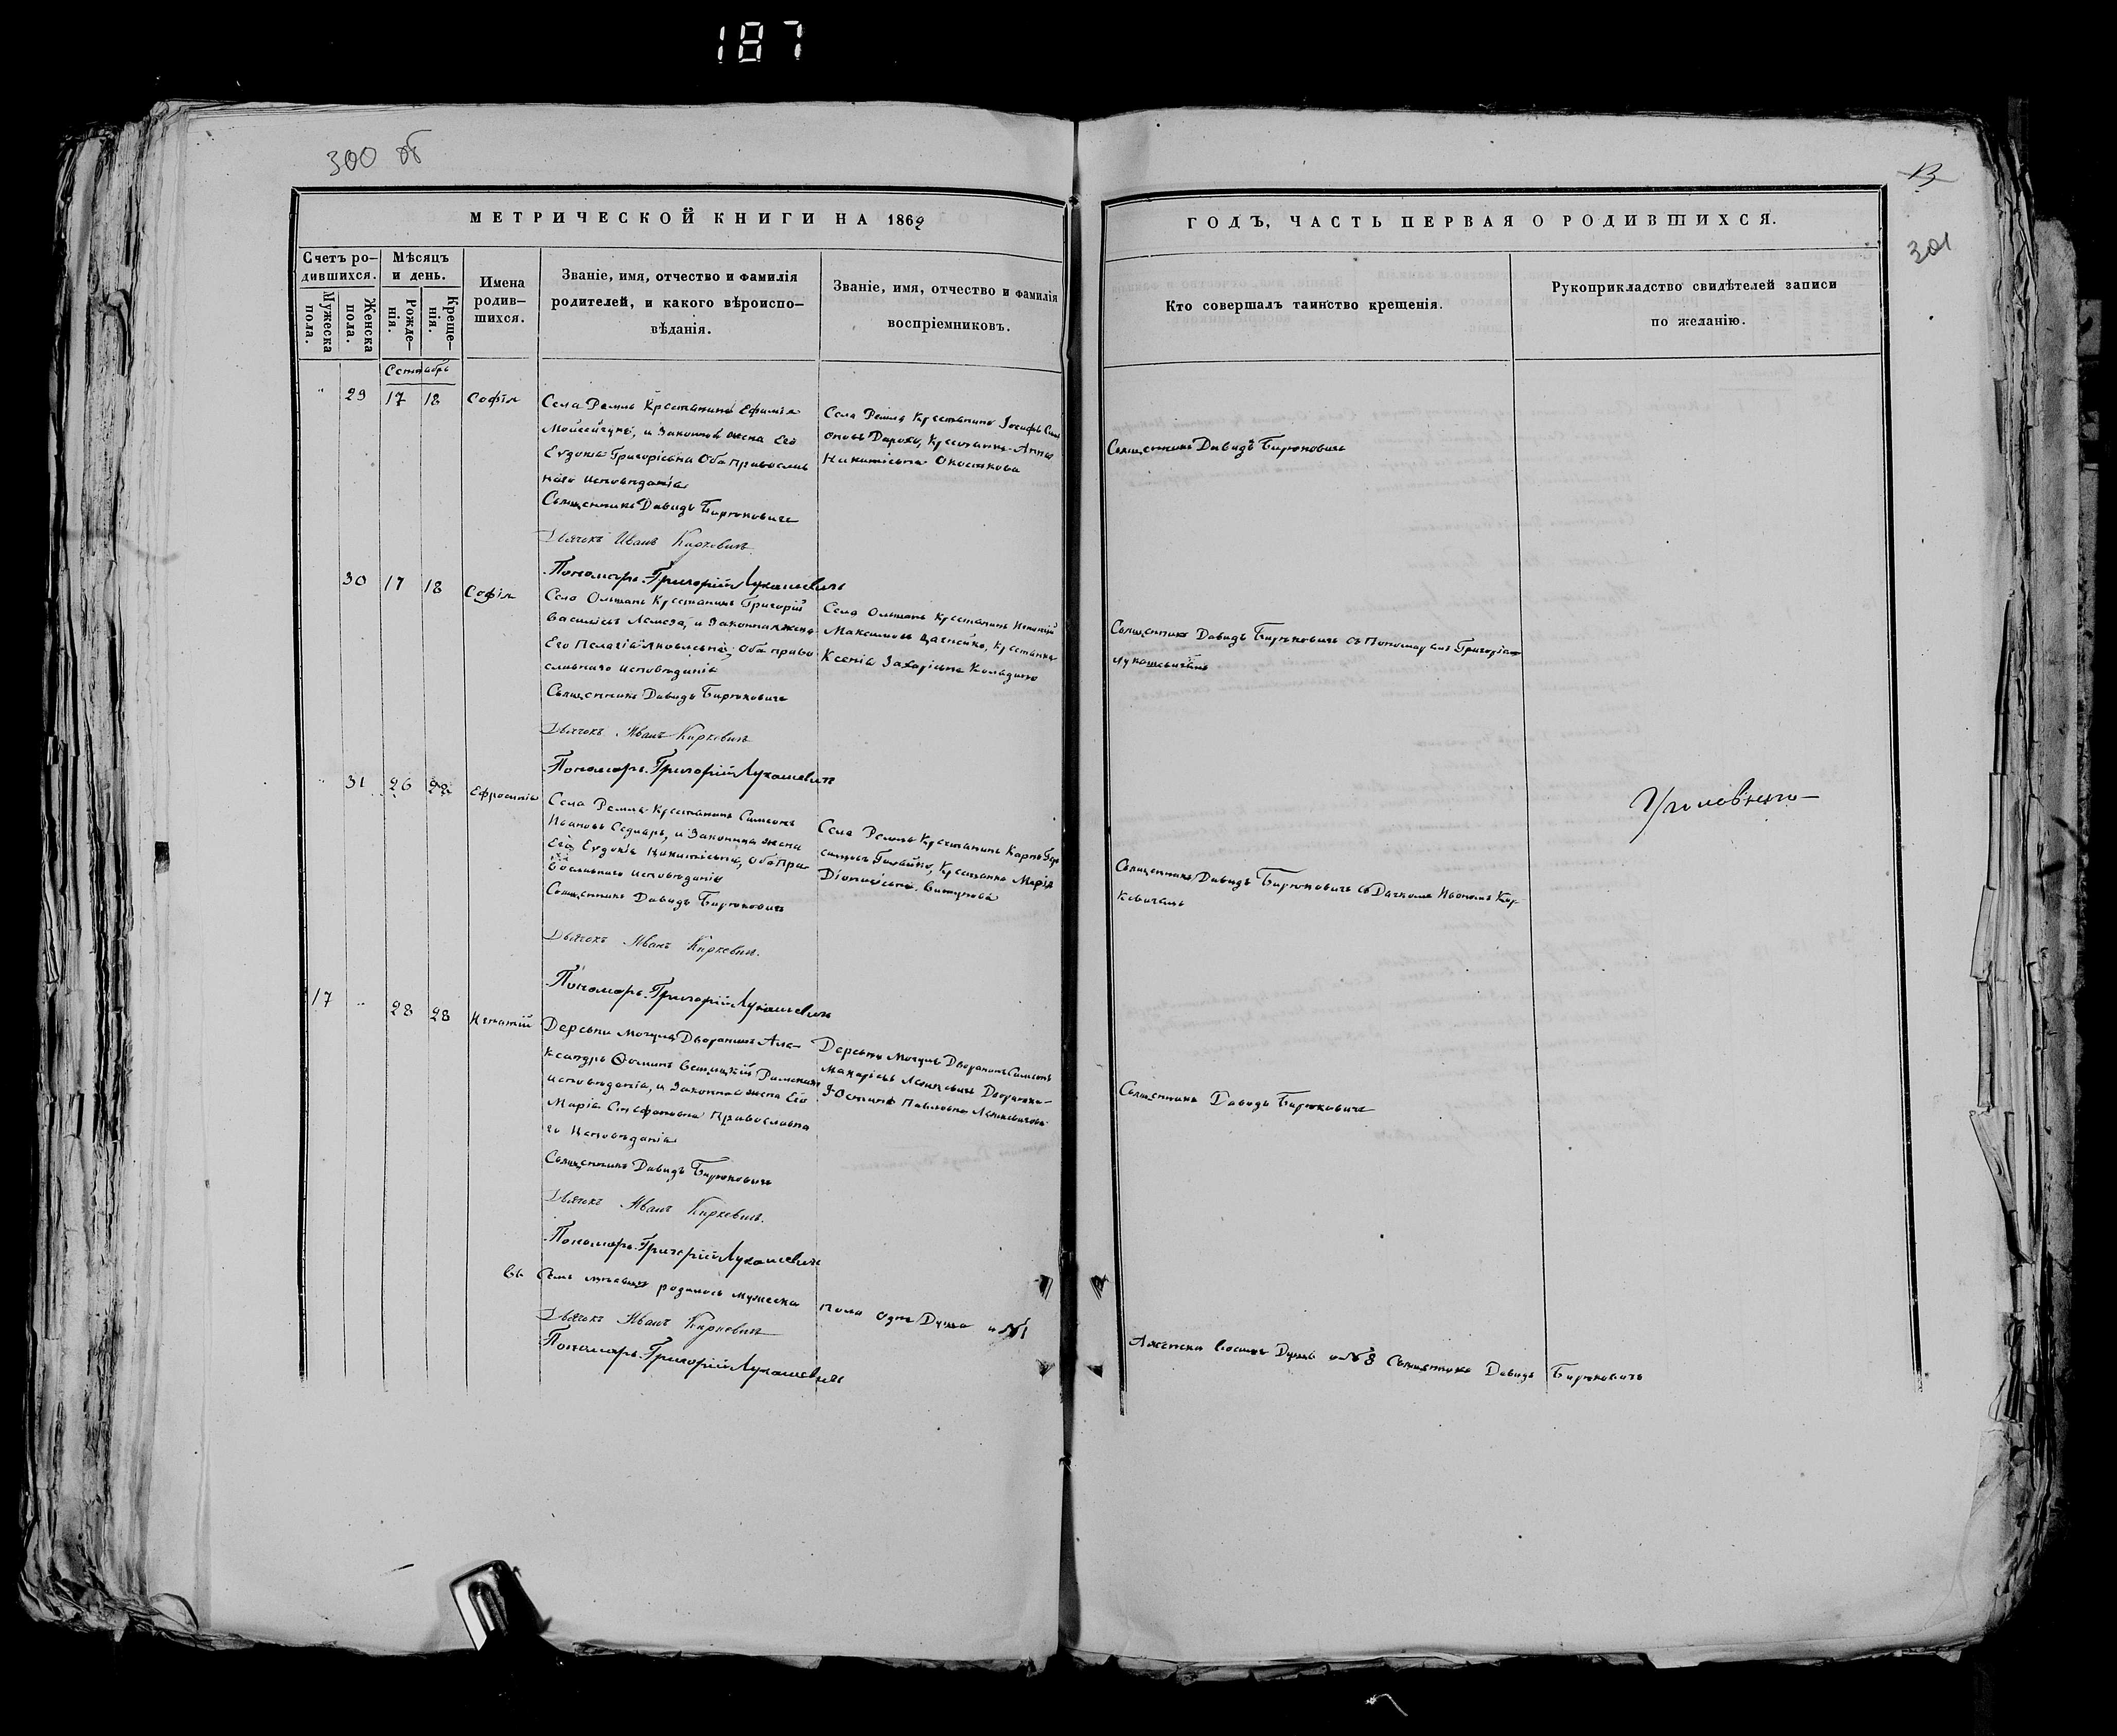 187
300 об
13
301
МЕТРИЧЕСКОЙ КНИГИ НА 1862
ГОДЪ, ЧАСТЬ ПЕРВАЯ О РОДИВШИХСЯ.
Счетъ ро-
дившихся.
Мужеска
пола.
Женска
пола.
Мѣсяцъ
и день.
Рожде-
нія.
Креще-
нія.
Имена
родив-
шихся.
Званіе, имя, отчество и фамилія
родителей, и какого вѣроиспо-
вѣданія.
Званіе, имя, отчество и фамилія
воспріемниковъ.
Кто совершалъ таинство крещенія.
Рукоприкладство свидѣтелей записи
по желанію.
Сентябрь
29 17 18 Софія
Села Ремля Крестьянинъ Ефимій
и Законная жена Его
Евдокія Григоріевна Оба православ
наго исповѣданія
Священникъ Давидъ Бирюковичъ
Дьячокъ Иванъ Киркевичъ
Пономарь Григорій Лукашевичъ
Села Ремля Крестьянинъ Іосифъ
Крестьянка Анна
Никитична
Священникъ Давидъ Бирюковичъ
30 17 18 Софія
Села Ольшанъ Крестьянинъ Григорій
Василіевъ и Законная жена
Его Пелагія Яковлевна, Оба право
славнаго исповѣданія
Священникъ Давидъ Бирюковичъ
Дьячокъ Иванъ Киркевичъ
Пономарь Григорій Лукашевичъ
Села Ольшанъ Крестьянинъ Игнатій
Максимовъ Крестьянка
Ксенія Захаріевна
Священникъ Давидъ Бирюковичъ съ Пономаремъ Григоріемъ
Лукашевичемъ
31 26 28 Ефросинія
Села Ремля Крестьянинъ Симеонъ
Ивановъ и Законная жена
Его Евдокія Никитична, Оба Пра-
вославнаго исповѣданія
Священникъ Давидъ Бирюковичъ
Дьячокъ Иванъ Киркевичъ.
Пономарь Григорій Лукашевичъ
Села Ремля Крестьянинъ Карпъ
Крестьянка Марія
Священникъ Давидъ Бирюковичъ съ Дьячкомъ Иваномъ Кир-
кевичемъ
17 28 28 Игнатій
Деревни Мочулъ Дворянинъ Але-
ксандръ Ѳоминъ Римскаго
исповѣданія, и Законная жена Его
Марія Стефановна Православна
го Исповѣданія
Священникъ Давидъ Бирюковичъ
Дьячокъ Иванъ Киркевичъ.
Пономарь Григорій Лукашевичъ
Деревни Мочулъ Дворянинъ Симеонъ
Макаріевъ Дворянка
Юстина Павловна
Священникъ Давидъ Бирюковичъ
Въ семъ мѣсяцѣ родилось мужеска пола одна Душа №1
Дьячокъ Иванъ Киркевичъ
Пономарь Григорій Лукашевичъ
А женска восемь Душъ №8 Священникъ Давидъ Бирюковичъ